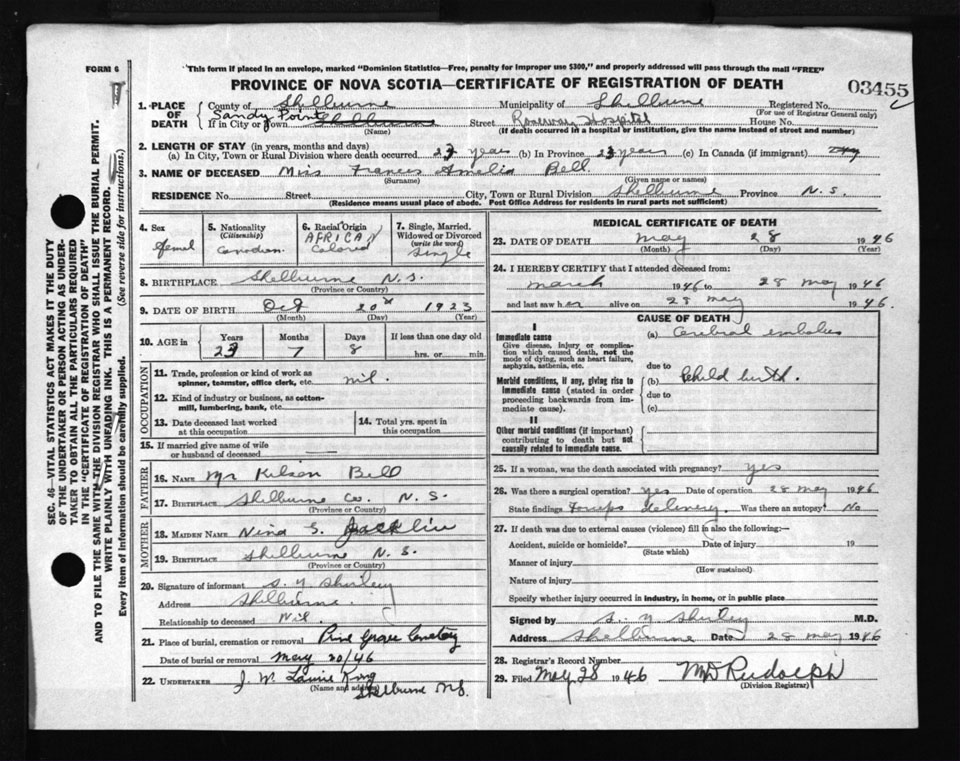 FORM 6
This form if placed in an envelope, marked "Dominion Statistics—Free, penalty for improper use $300," and properly addressed will pass through the mail "FREE"
PROVINCE OF NOVA SCOTIA—CERTIFICATE OF REGISTRATION OF DEATH
03455
1. PLACE OF DEATH
County of Shelburne Municipality of Shelburne Registered No.
(For use of Registrar General only)
Sandy Point
If in City or Town Shelburne Street Roseway Hospital House No.
(Name) (If death occurred in a hospital or institution, give the name instead of street and number)
2. LENGTH OF STAY (in years, months and days)
(a) In City, Town or Rural Division where death occurred 23 years (b) In Province 23 years (c) In Canada (if immigrant)
3. NAME OF DECEASED Miss Frances Amelia Bell
(Surname) (Given name or names)
RESIDENCE No. Street City, Town or Rural Division Shelburne Province N.S.
(Residence means usual place of abode. Post Office Address for residents in rural parts not sufficient)
4. Sex
Femal
5. Nationality
(Citizenship)
Canadian
6. Racial Origin
AFRICAN
Colored
7. Single, Married,
Widowed or Divorced
(write the word)
Single
8. BIRTHPLACE Shelburne N.S.
(Province or Country)
9. DATE OF BIRTH Oct 20th 1923
(Month) (Day) (Year)
10. AGE in
Years Months Days If less than one day old
23 7 8 hrs. or min.
OCCUPATION
11. Trade, profession or kind of work as
spinner, teamster, office clerk, etc. nil.
12. Kind of industry or business, as cotton-
mill, lumbering, bank, etc.
13. Date deceased last worked
at this occupation
14. Total yrs. spent in
this occupation
15. If married give name of wife
or husband of deceased
FATHER
16. NAME Mr Kilson Bell
17. BIRTHPLACE Shelburne Co. N.S.
(Province or Country)
MOTHER
18. MAIDEN NAME Nina S. Jacklin
19. BIRTHPLACE Shelburne N.S.
(Province or Country)
20. Signature of informant
Address Shelburne.
Relationship to deceased Nil.
21. Place of burial, cremation or removal Pine Grove Cemetery
Date of burial or removal May 30/46
22. UNDERTAKER J. W. Laurie King
(Name and address) Shelburne N.S.
MEDICAL CERTIFICATE OF DEATH
23. DATE OF DEATH May 28 1946
(Month) (Day) (Year)
24. I HEREBY CERTIFY that I attended deceased from:
March 1946 to 28 May 1946
and last saw her alive on 28 May 1946.
CAUSE OF DEATH
I
Immediate cause
Give disease, injury or complica-
tion which caused death, not the
mode of dying, such as heart failure,
asphyxia, asthenia, etc.
(a) Cerebral embolus
due to
Morbid conditions, if any, giving rise to
immediate cause (stated in order
proceeding backwards from im-
mediate cause).
(b) Child birth.
due to
(c)
II
Other morbid conditions (if important)
contributing to death but not
causally related to immediate cause.
25. If a woman, was the death associated with pregnancy? yes
26. Was there a surgical operation? yes Date of operation 28 May 1946
State findings Forceps delivery. Was there an autopsy? No
27. If death was due to external causes (violence) fill in also the following:—
Accident, suicide or homicide? Date of injury 19
(State which)
Manner of injury
(How sustained)
Nature of injury
Specify whether injury occurred in industry, in home, or in public place
Signed by M.D.
Address Shelburne Date 28 May 1946
28. Registrar's Record Number
29. Filed May 28 1946 MD Rudolph
(Division Registrar)
SEC. 46—VITAL STATISTICS ACT MAKES IT THE DUTY
OF THE UNDERTAKER OR PERSON ACTING AS UNDER-
TAKER TO OBTAIN ALL THE PARTICULARS REQUIRED
IN THE "CERTIFICATE OF REGISTRATION OF DEATH"
AND TO FILE THE SAME WITH THE DIVISION REGISTRAR WHO SHALL ISSUE THE BURIAL PERMIT.
WRITE PLAINLY WITH UNFADING INK. THIS IS A PERMANENT RECORD.
Every item of information should be carefully supplied. (See reverse side for instructions.)